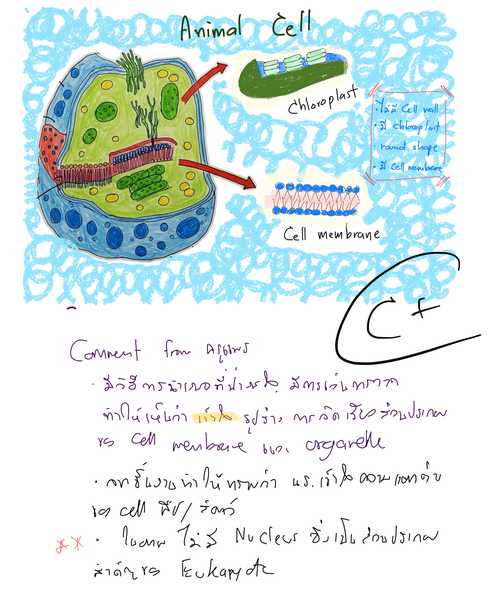 Animal Cell
Chloroplast
• ไม่มี Cell wall
• มี Chloroplast
round shape
• มี Cell membrane
Cell membrane
C+
Comment from
• มีวิธีการนำเสนอที่น่าสนใจ มีการ
ทำให้เห็นว่า เข้าใจ รูปร่าง การจัดเรียง ส่วนประกอบ
ของ cell membrane และ organelle
• จากชิ้นงานทำให้ทราบว่า นร. เข้าใจความแตกต่าง
ของ cell พืช/สัตว์
** • ในภาพ ไม่มี Nucleus ซึ่งเป็นส่วนประกอบ
สำคัญของ Eukaryotic